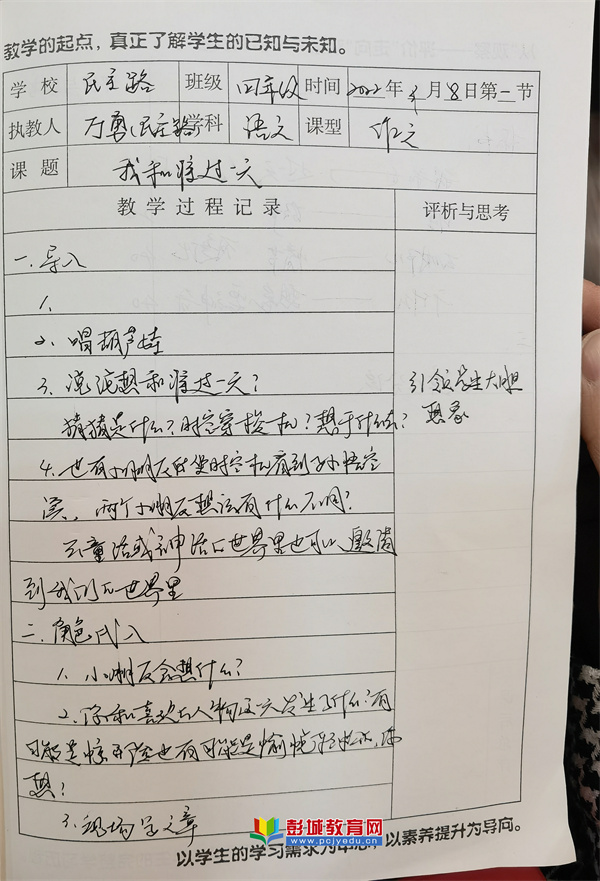 教学的起点，真正了解学生的已知与未知。
学 校 民主路 班级 四年级 时间 2022年 月8日第一节
执教人 万勇（民主路） 学科 语文 课型 作文
课 题 我和 过一天
教 学 过 程 记 录 评析与思考
一.导入
1.
2.唱葫芦娃
3.说说想和谁过一天？
猜猜是什么？时空穿梭机？想干什么？
引领学生大胆
想象
4.也有小朋友 使时空机看到孙悟空
，两个小朋友想法有什么不同？
去童话或神话的世界里也可以邀请
到我们的世界里
二.角色代入
1.小朋友会想什么？
2.你和喜欢的人物这一天发生了什么？有
可能是惊 险也有可能是愉快 ，
想？
3.现场写文章
彭城教育网
www.pcjyedu.cn
以学生的学习需求为中心，以素养提升为导向。